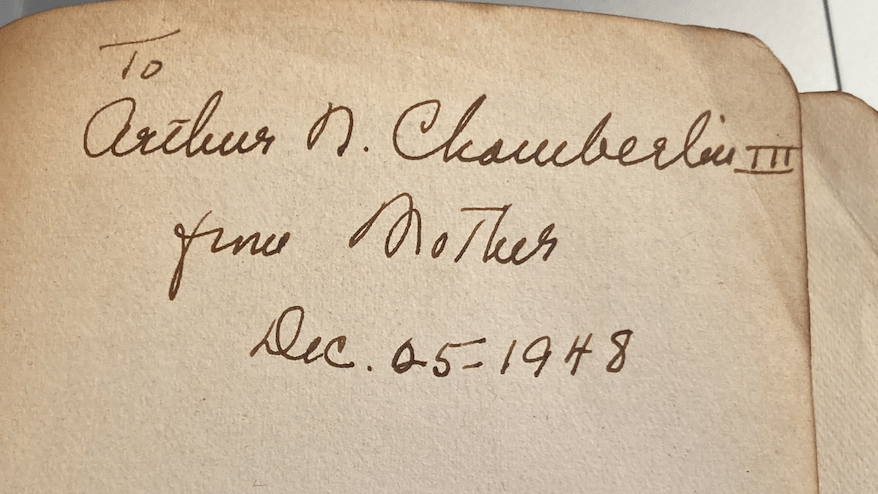 To
Arthur N. Chamberlin III
from Mother
Dec. 25-1948